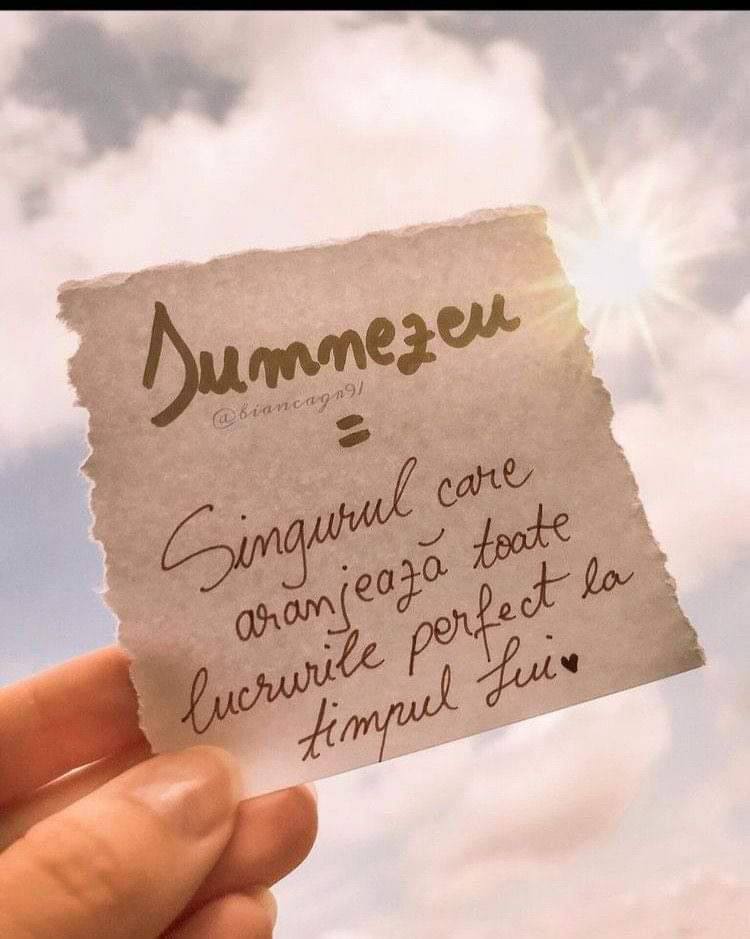 Dumnezeu
@biancagr91
=
Singurul care
aranjează toate
lucrurile perfect la
timpul Lui♥